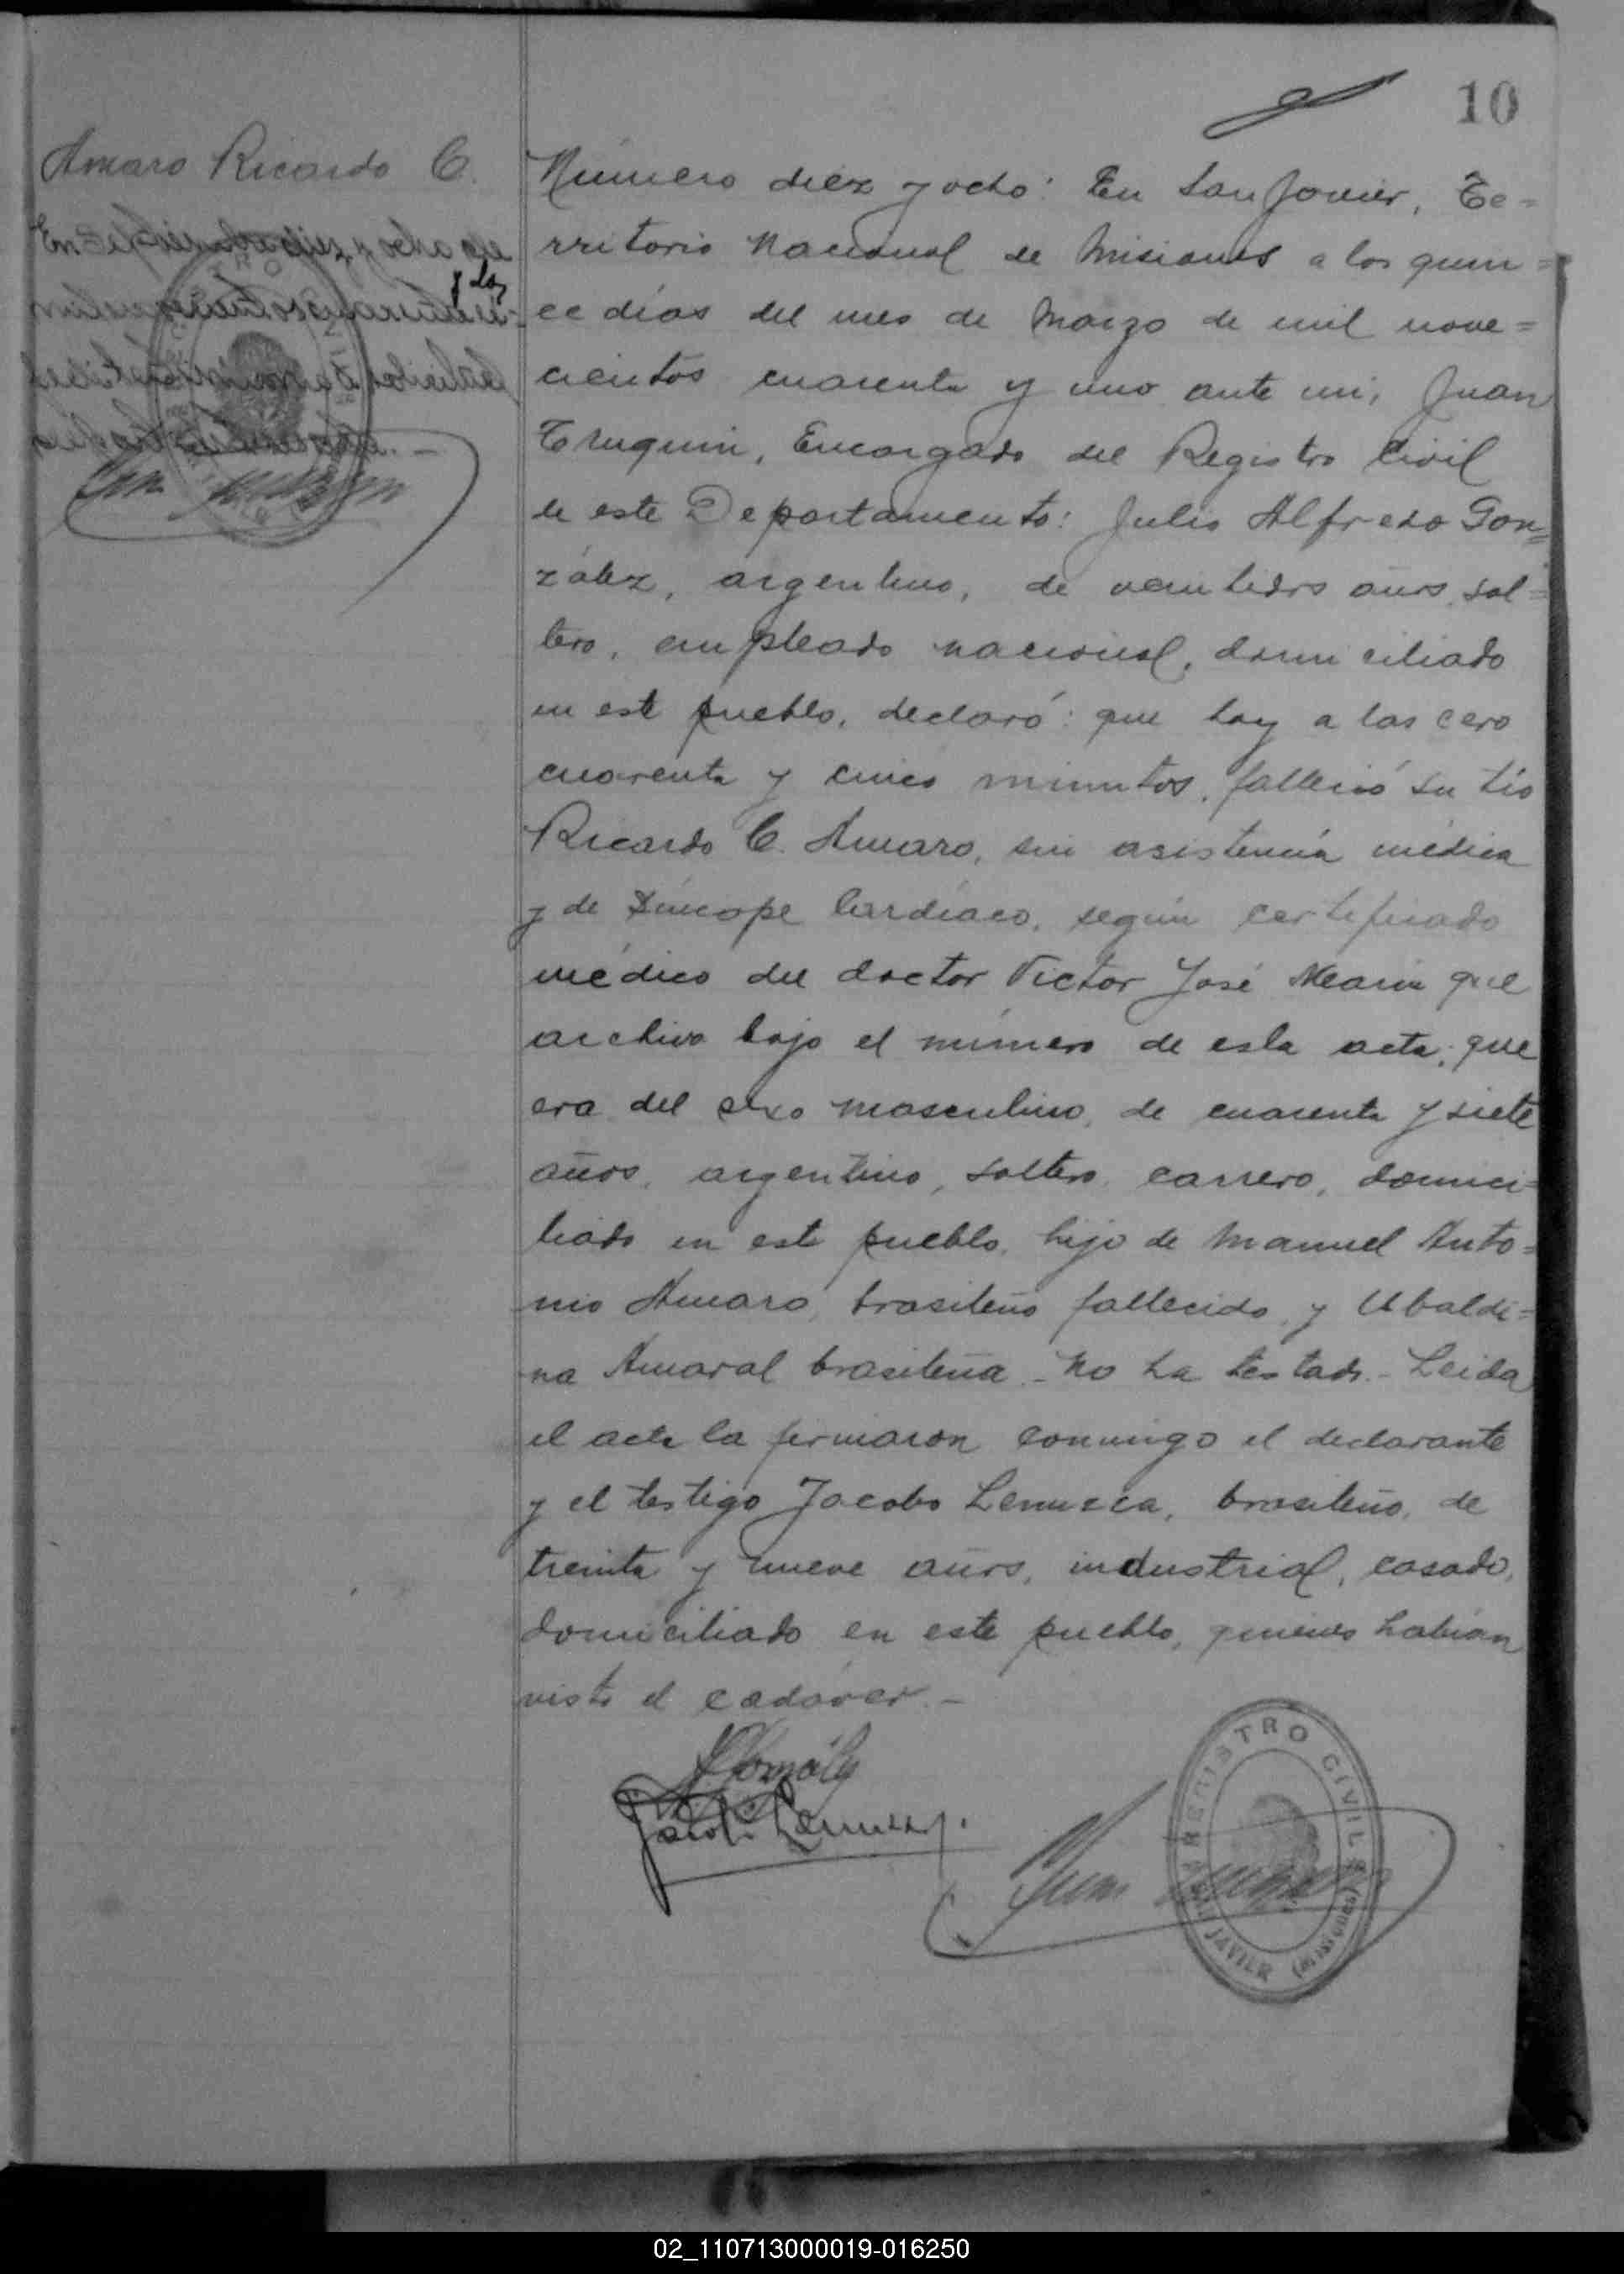 10
Amaro Ricardo C.
Número diez y ocho: En San Javier, Te=
rritorio Nacional de Misiones a los quin=
ce días del mes de Marzo de mil nove=
cientos cuarenta y uno ante mi, Juan
Truquin, Encargado del Registro Civil
de este Departamento: Julio Alfredo Gon=
zález, argentino, de veintidos años, sol=
tero, empleado nacional, domiciliado
en este pueblo, declaró: que hoy a las cero
cuarenta y cinco minutos, falleció su tío
Ricardo C. Amaro, sin asistencia médica
y de Síncope Cardíaco, según certificado
médico del doctor Victor José Mearin que
archivo bajo el número de esta acta; que
era del sexo masculino, de cuarenta y siete
años, argentino, soltero, carrero, domici=
liado en este pueblo, hijo de Manuel Anto=
nio Amaro, brasileño fallecido, y Ubaldi=
na Amaral brasileña.- No ha testado.- Leida
el acta la firmaron conmigo el declarante
y el testigo Jacobo Lenuzza, brasileño, de
treinta y nueve años, industrial, casado,
domiciliado en este pueblo, quienes habían
visto el cadáver.-
REGISTRO CIVIL
JAVIER (Misiones)
02_110713000019-016250